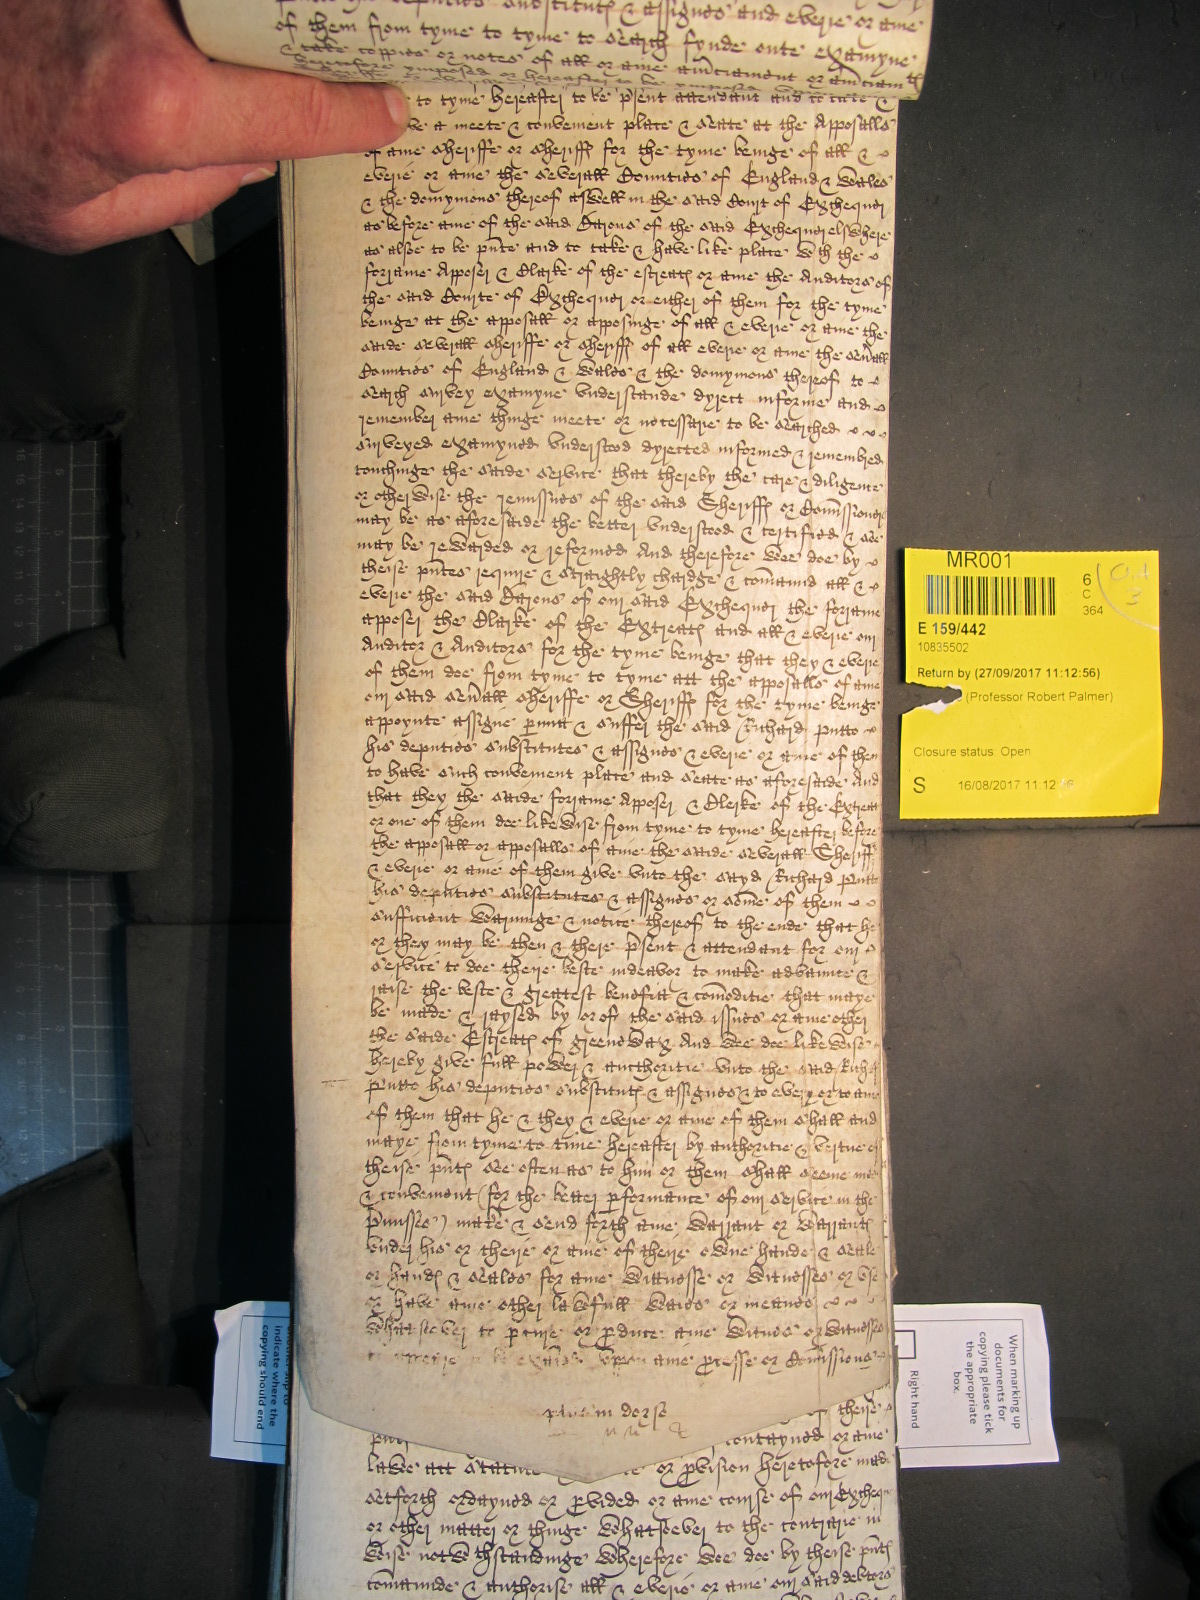 deputies substituts & assignes and everie or anie
of them from tyme to tyme to search fynde oute examyne
& take coppies or notes of all or anie
heretofore or hereafter to be
to tyme hereafter to be p'sent attendant and to take &
a meete & convenient place & seate at the Apposalls
of anie Sheriffe or Sheriffs for the tyme beinge of all &
everie or anie the severall Counties of England & Wales
& the domynions thereof aswell in the said Court of Exchequer
as before anie of the said Barons of the said Exchequer elswhere
as alsoe to be p'nte and to take & have like place with the
forraine Apposer & Clarke of the estreats or anie the Auditors of
the said Courte of Exchequer or either of them for the tyme
beinge at the apposall or apposinge of all & everie or anie the
saide severall sheriffe or sheriffs of all everie or anie the sev'all
Counties of England & Wales & the domynions thereof to
search survey examyne understande dyrect informe and
remember anie thinge meete or necessarie to be searched
surveyed examyned understood dyrected informed & remembred
touchinge the saide service that thereby the care & diligence
or otherwise the remissnes of the said Sheriffs or Com'issioners
may be as aforesaide the better understood & certified & soe
may be rewarded or reformed And therefore wee doe by
theise p'ntes require & straightly chardge & com'aund all &
everie the said Barons of our said Exchequer the forraine
apposer the Clarke of the Extreats and all & everie our
Auditor & Auditors for the tyme beinge that they & everie
of them doe from tyme to tyme att the apposalls of anie
our said sev'all sheriffe or Sheriffs for the tyme beinge
appoynte assigne p'mitt & suffer the said Richard Putto
his deputies substitutes & assignes & everie or anie of them
to have such convenient place and seate as aforesaide And
that they the saide forraine Apposer & Clerke of the Extreat
or one of them doe likewise from tyme to tyme hereafter before
the apposall or apposalls of anie the saide severall Sheriff
& everie or anie of them give unto the sayd Richard Putto
his deputies substitutes & assignes or some of them
sufficient warninge & notice thereof to the ende that he
or they may be then & there p'sent & attendant for our
service to doe theire beste indeavor to make advance &
raise the beste & greatest benefitt & com'oditie that maye
be made & raysed by or of the said issues or anie other
the saide Estreats of greenwax And wee doe likewise
hereby give full power & authoritie unto the said Rich
Putto his deputies substituts & assignes & to every or to anie
of them that he & they & everie or anie of them shall and
maye from tyme to time hereafter by authoritie & vertue of
theise p'nts soe often as to him or them shall seeme
& convenient (for the better p'formance of our service in the
p'misses) make & send forth anie warrant or warrants
under his or theire or anie of theire owne hande & seale
or hands & seales for anie wittnesse or witnesses or use
or have anie other lawfull waies or meanes
whatsoever to or p'duce anie witnes or witnesses
upon anie p'cesse or Com'issions
in dorse
of theire
contayned or anie
lawe att statute or p'vision heretofore made
setforth ordayned or p'vided or anie course of our Excheq
or other matter or thinge whatsoever to the contrarie in
wise notwthstandinge Wherefore wee doe by theise p'nts
comaunde & authorise all & everie or anie our said debtors
MR001
6
C
364
E 159/442
10835502
Return by (27/09/2017 11:12:56)
(Professor Robert Palmer)
Closure status: Open
S 16/08/2017 11:12
indicate where the
copying should end
When marking up
documents for
copying please tick
the appropriate
box.
Right hand